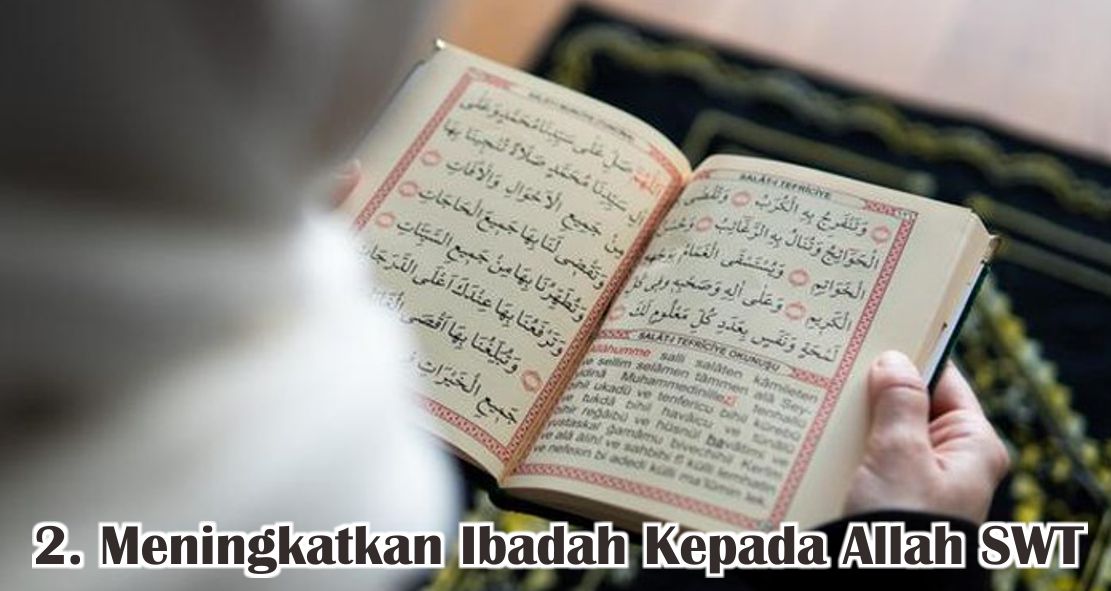 اَللّٰهُمَّ صَلِّ عَلٰى سَيِّدِنَا مُحَمَّدٍ وَعَلٰى
اٰلِ سَيِّدِنَا مُحَمَّدٍ صَلَاةً تُنْجِينَا بِهَا
مِنْ جَمِيعِ الْاَهْوَالِ وَالْاٰفَاتِ
وَتَقْضِى لَنَا بِهَا جَمِيعَ الْحَاجَاتِ
وَتُطَهِّرُنَا بِهَا مِنْ جَمِيعِ السَّيِّئَاتِ
وَتَرْفَعُنَا بِهَا عِنْدَكَ اَعْلَى الدَّرَجَاتِ
وَتُبَلِّغُنَا بِهَا اَقْصَى
جَمِيعِ الْخَيْرَاتِ
SALÂT-I TEFRİCİYE
وَتَنْفَرِجُ بِهِ الْكُرَبُ وَتُقْضٰى
الْحَوَائِجُ وَتُنَالُ بِهِ الرَّغَائِبُ وَحُسْنُ
الْخَوَاتِمِ وَيُسْتَسْقَى الْغَمَامُ بِوَجْهِهِ
الْكَرِيمِ وَعَلٰى اٰلِهِ وَصَحْبِهِ فِى كُلِّ
لَمْحَةٍ وَنَفَسٍ بِعَدَدِ كُلِّ مَعْلُومٍ لَكَ
SALÂT-I TEFRİCİYE OKUNUŞU
Allâhumme salli salâten kâmileten
ve sellim selâmen tâmmen alâ Sey-
Muhammedinillezî tenhallü
bihil ukadü ve tenfericu bihil kürebü
ve tukdâ bihil havâicu ve tünâlü
bihir reğâibü ve hüsnül havâtimi ve
yustaskal ğamâmu bivechihil Kerîmi
ve alâ âlihî ve sahbihi fî külli lemhatin
ve nefesin bi adedi külli ma'lûmin lek.
2. Meningkatkan Ibadah Kepada Allah SWT